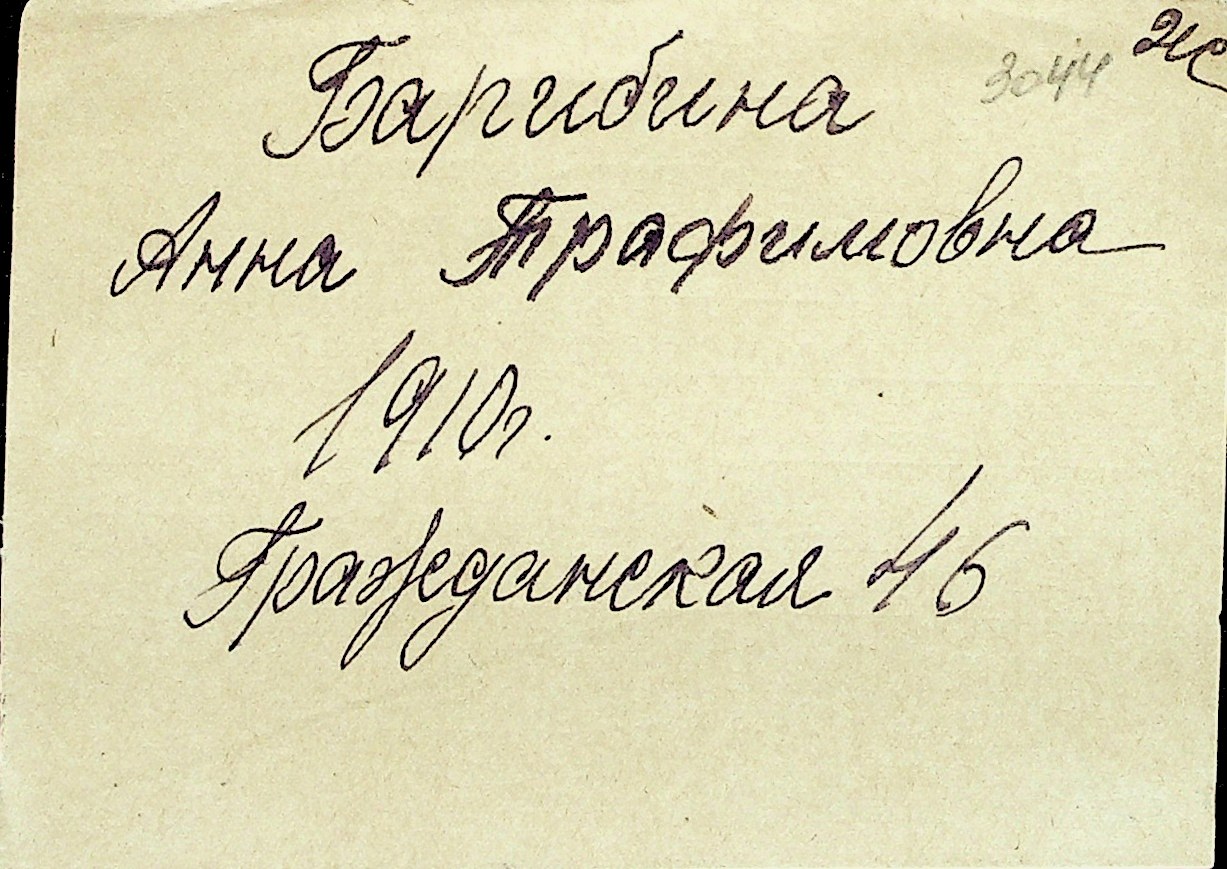 3044
Барибина
Анна Трафимовна
1910г.
Гражданская 46